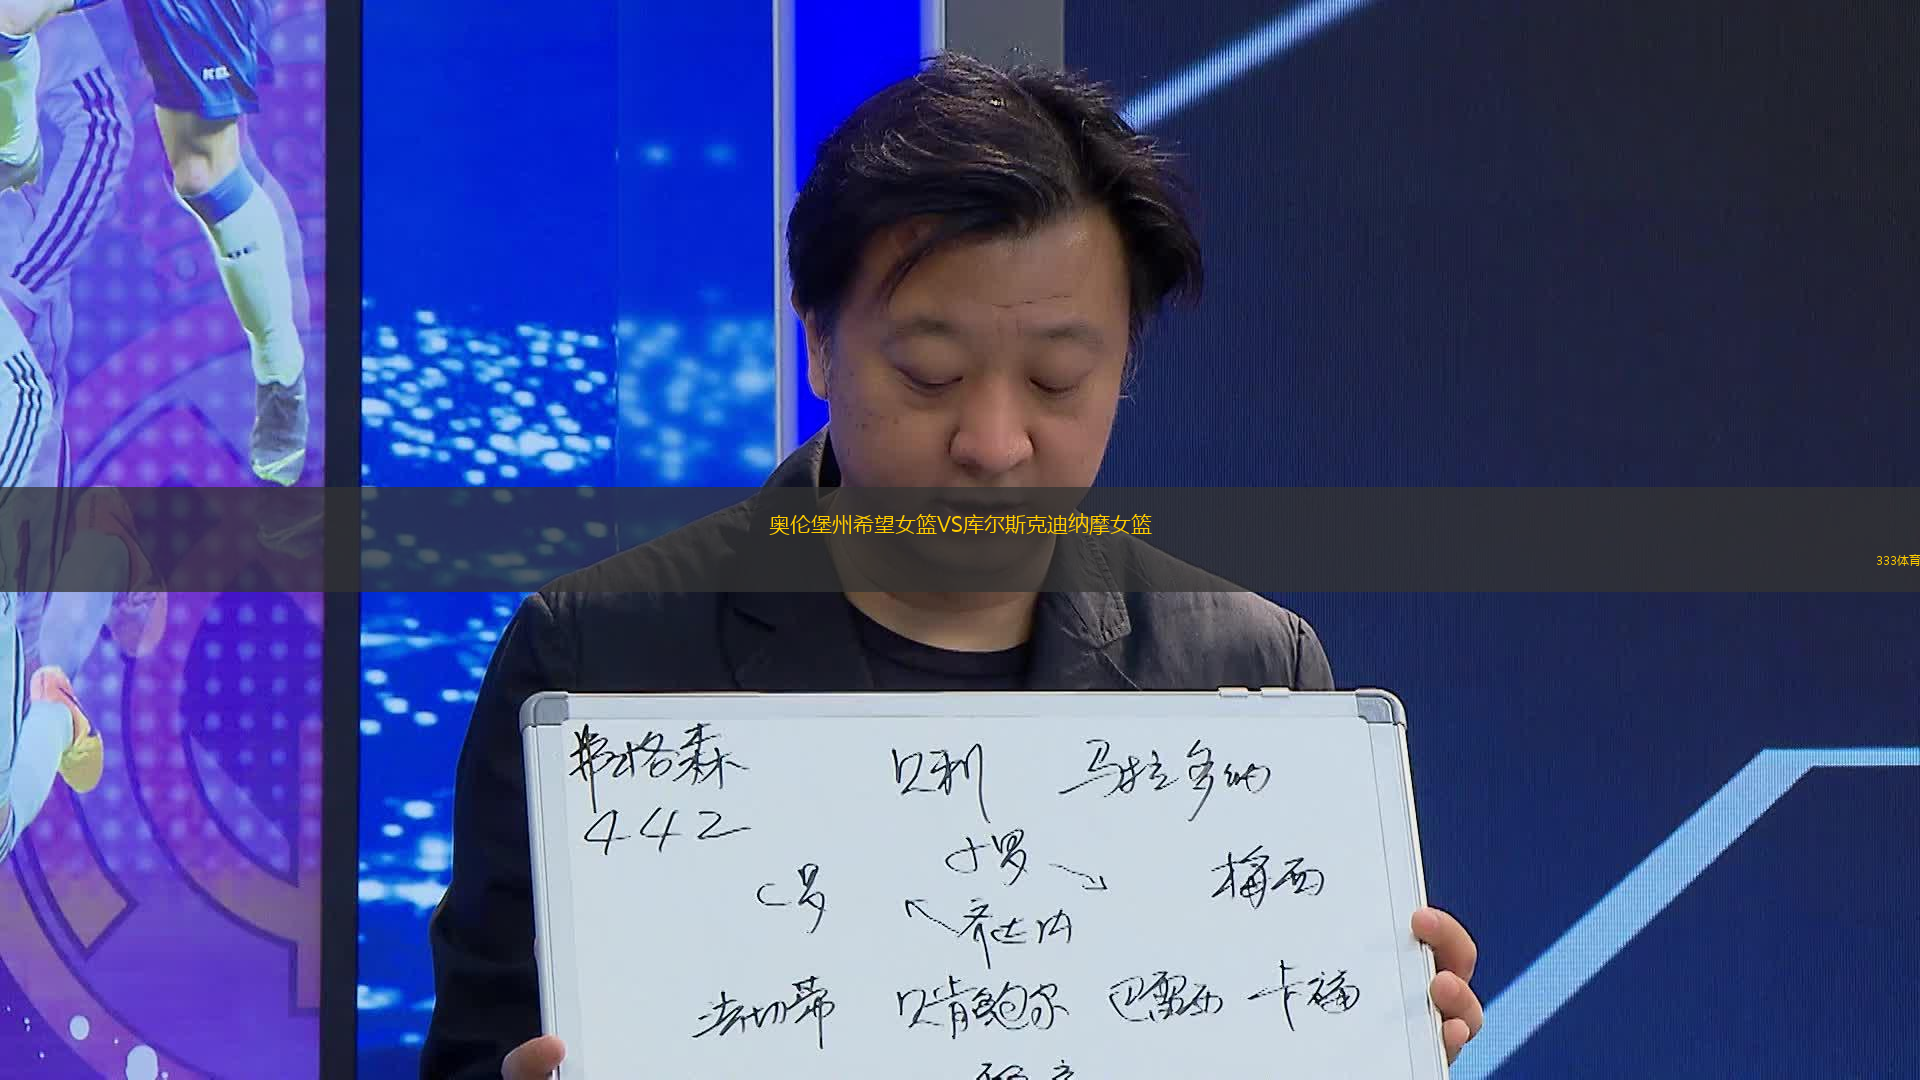 KELME
奥伦堡州希望女篮VS库尔斯克迪纳摩女篮
333体育
弗格森 贝利 马拉多纳
442
小罗
C罗 梅西
齐达内
法切蒂 贝肯鲍尔 巴雷西 卡福